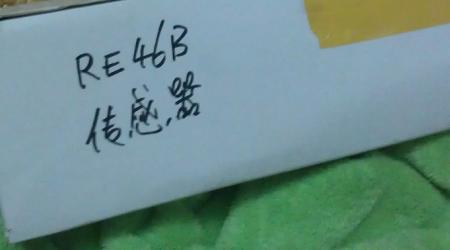 RE46B
传感器